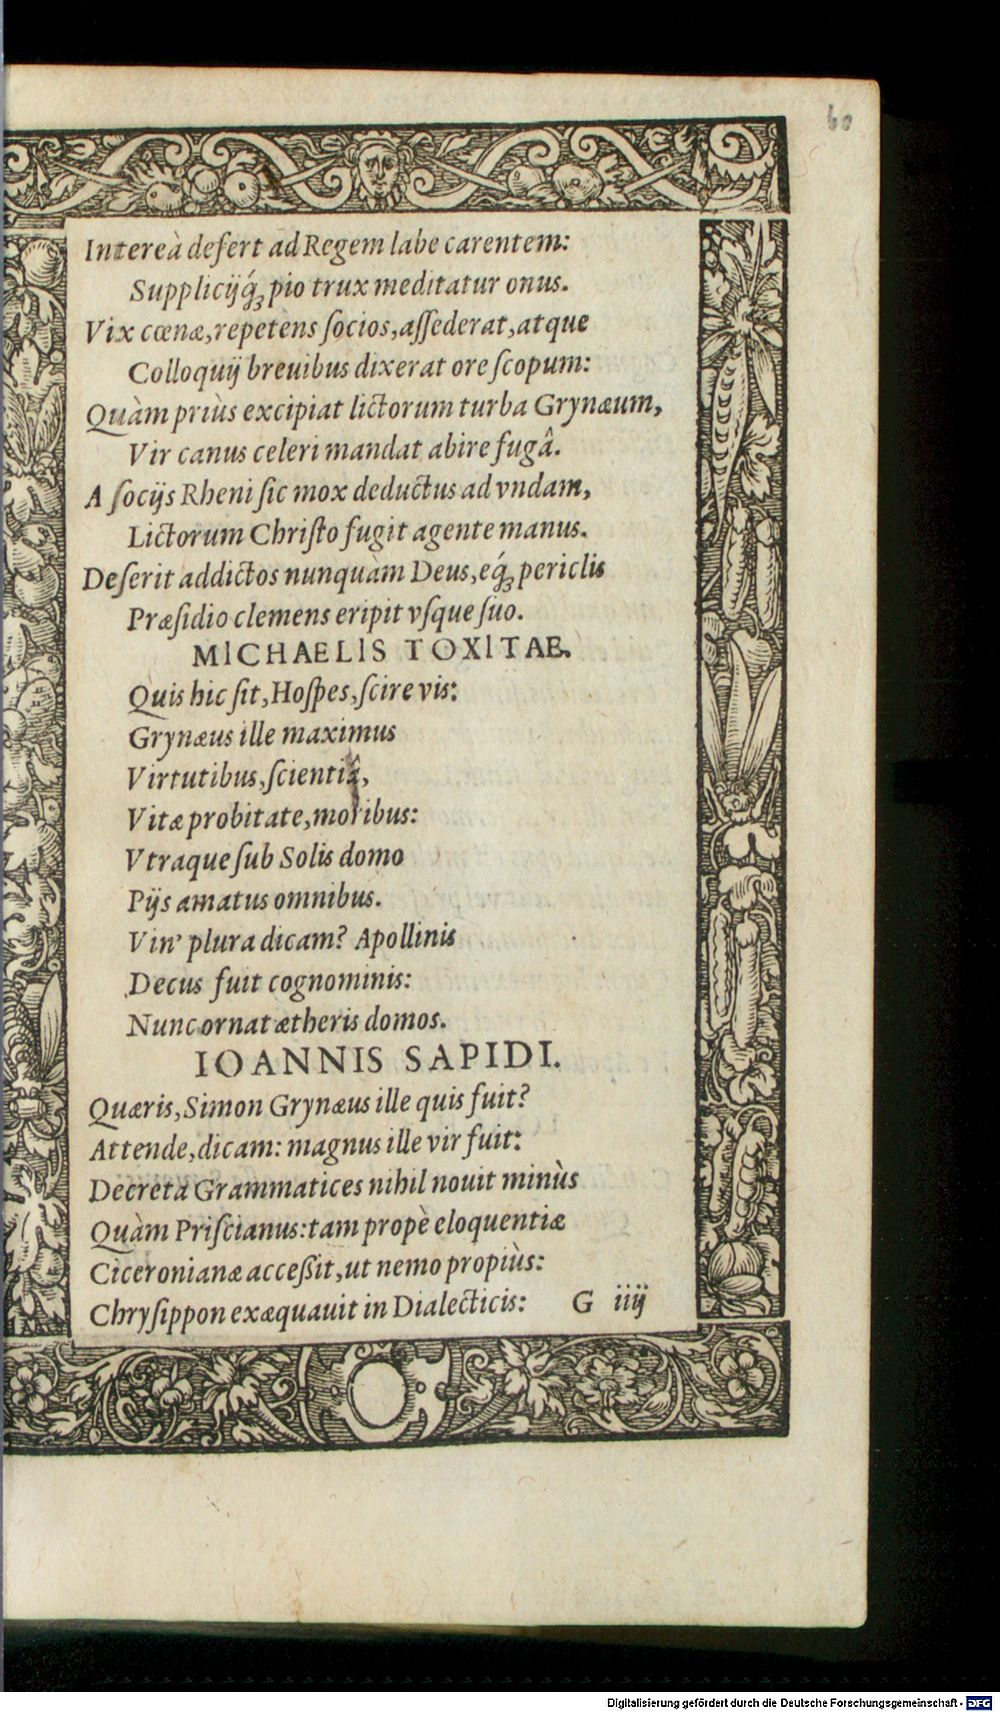 60
Intereà defert ad Regem labe carentem:
Supplicijq́ꝫ pio trux meditatur onus.
Vix cœnæ, repetens ſocios, aſſederat, atque
Colloquij breuibus dixerat ore ſcopum:
Quàm priùs excipiat lictorum turba Grynæum,
Vir canus celeri mandat abire fugâ.
A ſocijs Rheni ſic mox deductus ad vndam,
Lictorum Chriſto fugit agente manus.
Deſerit addictos nunquàm Deus, eq́ꝫ periclis
Præſidio clemens eripit vſque ſuo.
MICHAELIS TOXITAE.
Quis hic ſit, Hoſpes, ſcire vis:
Grynæus ille maximus
Virtutibus, ſcientiâ,
Vitæ probitate, moribus:
Vtraque ſub Solis domo
Pijs amatus omnibus.
Vin' plura dicam? Apollinis
Decus fuit cognominis:
Nunc ornat ætheris domos.
IOANNIS SAPIDI.
Quæris, Simon Grynæus ille quis fuit?
Attende, dicam: magnus ille vir fuit:
Decreta Grammatices nihil nouit minùs
Quàm Priſcianus: tam propè eloquentiæ
Ciceronianæ acceßit, ut nemo propiùs:
Chryſippon exæquauit in Dialecticis:
G iiij
Digitalisierung gefördert durch die Deutsche Forschungsgemeinschaft - DFG